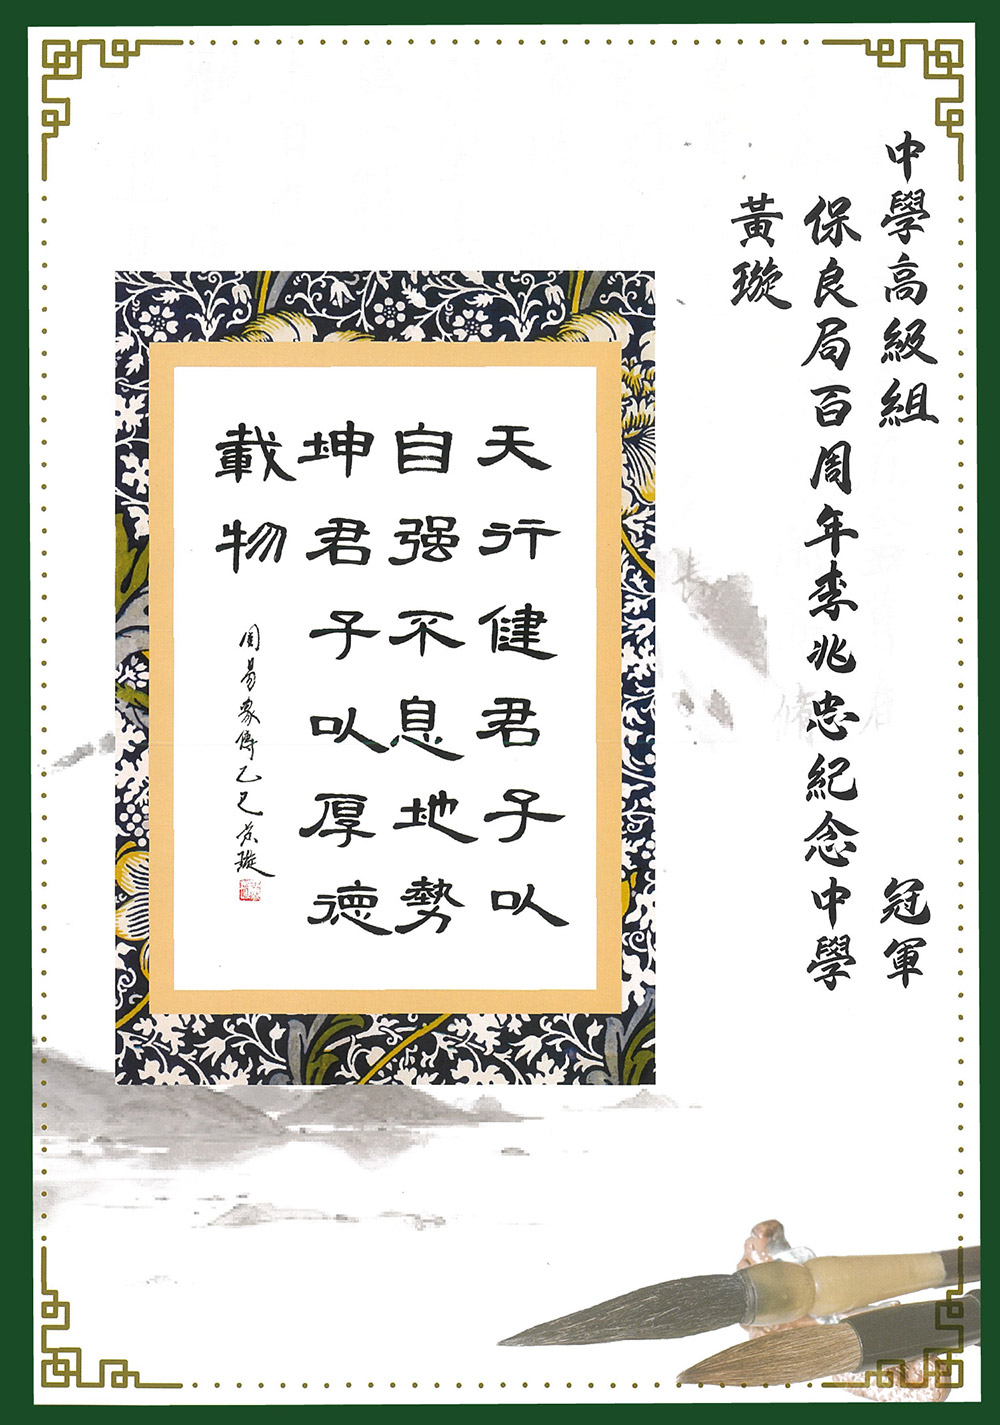 中學高級組 冠軍
保良局百周年李兆忠紀念中學
黃璇
天行健君子以
自强不息地勢
坤君子以厚德
載物
周易象傳乙巳黃璇